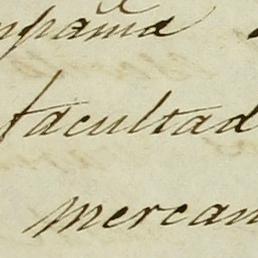 mpañia
facultad
mercan